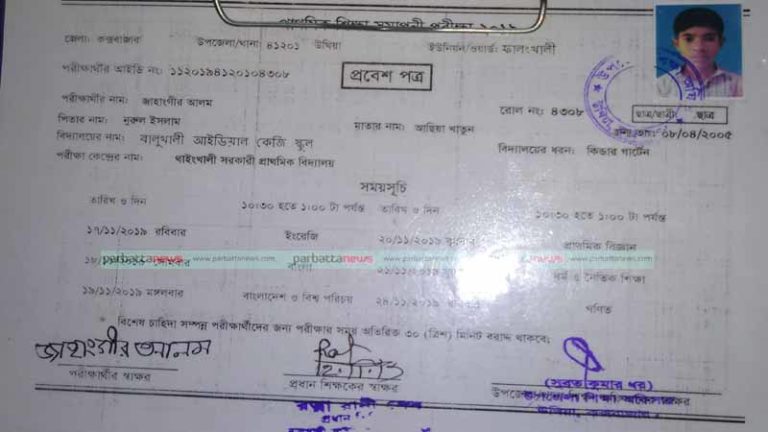 প্রাথমিক শিক্ষা সমাপনী পরীক্ষা
জেলা: কক্সবাজার উপজেলা/থানা: ৪১২০১ উখিয়া ইউনিয়ন/ওয়ার্ড: ফালংখালী
পরীক্ষার্থীর আইডি নং: ১১২০১৯৪১২০১০৪৩০৮ প্রবেশ পত্র
পরীক্ষার্থীর নাম: জাহাংগীর আলম রোল নং: ৪৩০৮ ছাত্র/ছাত্রী: ছাত্র
পিতার নাম: নুরুল ইসলাম মাতার নাম: আছিয়া খাতুন ০৮/০৪/২০০৫
বিদ্যালয়ের নাম: বালুখালী আইডিয়াল কেজি স্কুল বিদ্যালয়ের ধরন: কিন্ডার গার্টেন
পরীক্ষা কেন্দ্রের নাম: থাইংখালী সরকারী প্রাথমিক বিদ্যালয়
সময়সূচি
তারিখ ও দিন ১০:৩০ হতে ১:০০ টা পর্যন্ত তারিখ ও দিন ১০:৩০ হতে ১:০০ টা পর্যন্ত
১৭/১১/২০১৯ রবিবার ইংরেজি ২০/১১/২০১৯ বুধবার প্রাথমিক বিজ্ঞান
parbattanews www.parbattanews.com
বাংলা ২১/১১/২০১৯ ধর্ম ও নৈতিক শিক্ষা
১৯/১১/২০১৯ মঙ্গলবার বাংলাদেশ ও বিশ্ব পরিচয় ২৪/১১/২০১৯ গণিত
* বিশেষ চাহিদা সম্পন্ন পরীক্ষার্থীদের জন্য পরীক্ষার সময় অতিরিক্ত ৩০ (ত্রিশ) মিনিট বরাদ্দ থাকবে।
জাহাংগীর আলম
পরীক্ষার্থীর স্বাক্ষর প্রধান শিক্ষকের স্বাক্ষর
(সুব্রত কুমার ধর)
প্রধান